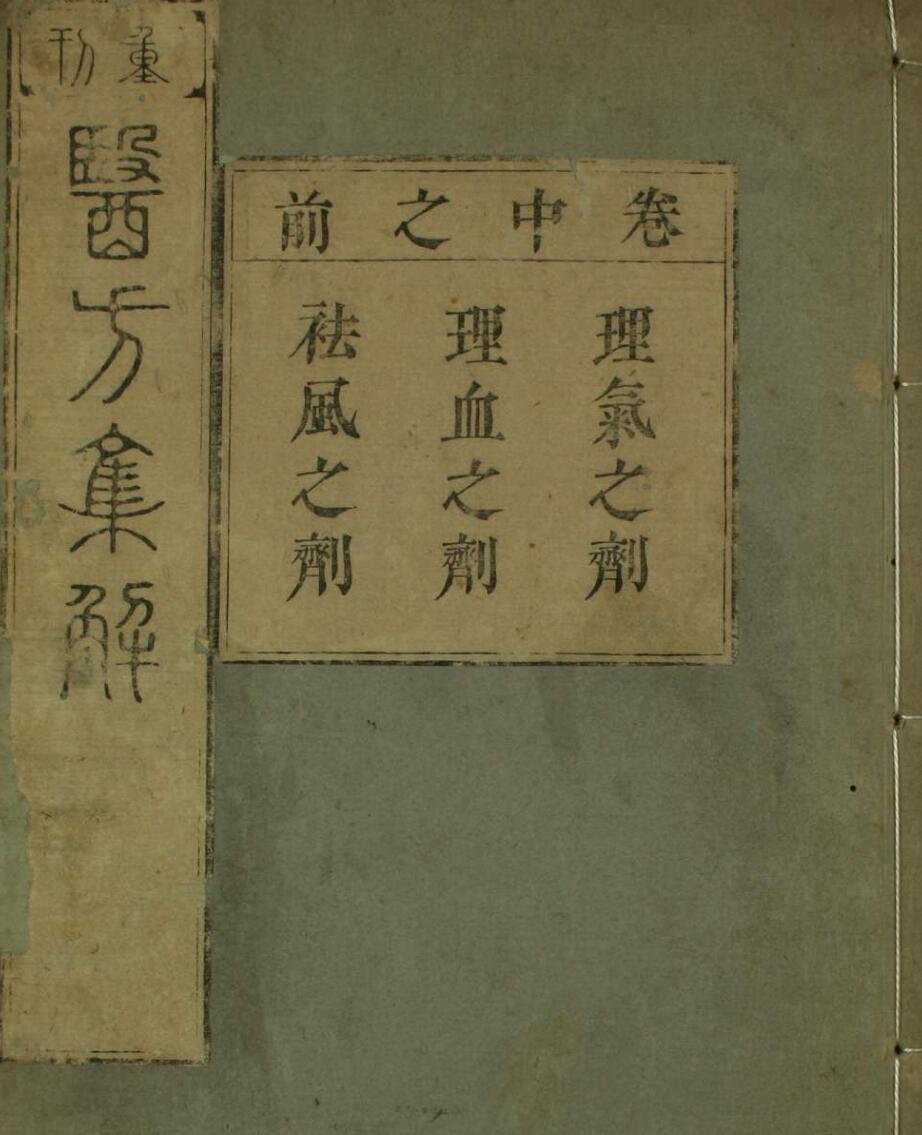 重刊
醫方集解
卷中之前
理氣之劑
理血之劑
祛風之劑